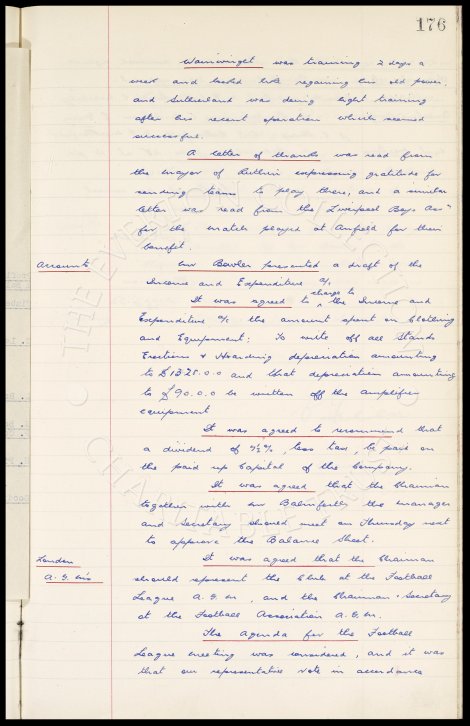 176
Wainwright was training 2 days a
week and looked like regaining his old power,
and Sutherland was doing light training
after his recent operation which seemed
successful.
A letter of thanks was read from
the mayor of Ruthin expressing gratitude for
sending teams to play there, and a similar
letter was read from the Liverpool Boys Assn
for the match played at Anfield for their
benefit.
Accounts
Mr Bowler presented a draft of the
Income and Expenditure a/c
It was agreed to charge to the Income and
Expenditure a/c the amount spent on Clothing
and Equipment: To write off all Stands
Erections & Hoarding depreciation amounting
to £1325.0.0 and that depreciation amounting
to £90.0.0 be written off the amplifier
equipment
It was agreed to recommend that
a dividend of 7½%, less tax, be paid on
the paid up Capital of the Company.
It was agreed that the Chairman
together with Mr Balmforth, the manager
and Secretary should meet on Thursday next
to approve the Balance Sheet.
London
A.G.M's
It was agreed that the Chairman
should represent the Club at the Football
League A.G.M., and the Chairman & Secretary
at the Football Association A.G.M.
The Agenda for the Football
League meeting was considered, and it was
that our representative vote in accordance
THE EVERTON COLLECTION
CHARITABLE TRUST